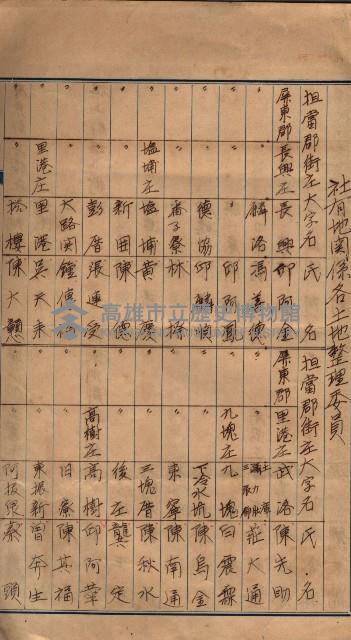 社有地関係各土地整理委員
担當郡街庄大字名 氏名 担當郡街庄大字名 氏名
屏東郡 長興庄 長興 邱阿金 屏東郡 里港庄 武洛 陳先助
〃 〃 麟洛 馮 德 〃 〃 土庫 三張廍 莊大通
〃 〃 〃 邱阿鳳 〃 九塊庄 九塊 白震霖
〃 〃 德協 邱麟順 〃 〃 下冷水坑 陳烏金
〃 〃 番子寮 林 〃 〃 東寧 陳南通
〃 塩埔庄 塩埔 黃慶 〃 〃 三塊厝 陳秋水
〃 〃 新囲 陳德 〃 〃 後庄 龔定
〃 〃 彭厝 張連受 〃 高樹庄 高樹 邱阿華
〃 〃 大路関 鐘 〃 〃 旧寮 陳其福
〃 里港庄 里港 吳天來 〃 〃 東振新 曾奔生
〃 〃 搭樓 陳大戇 〃 〃 阿拔泉 蔡頭
高雄市立歷史博物館